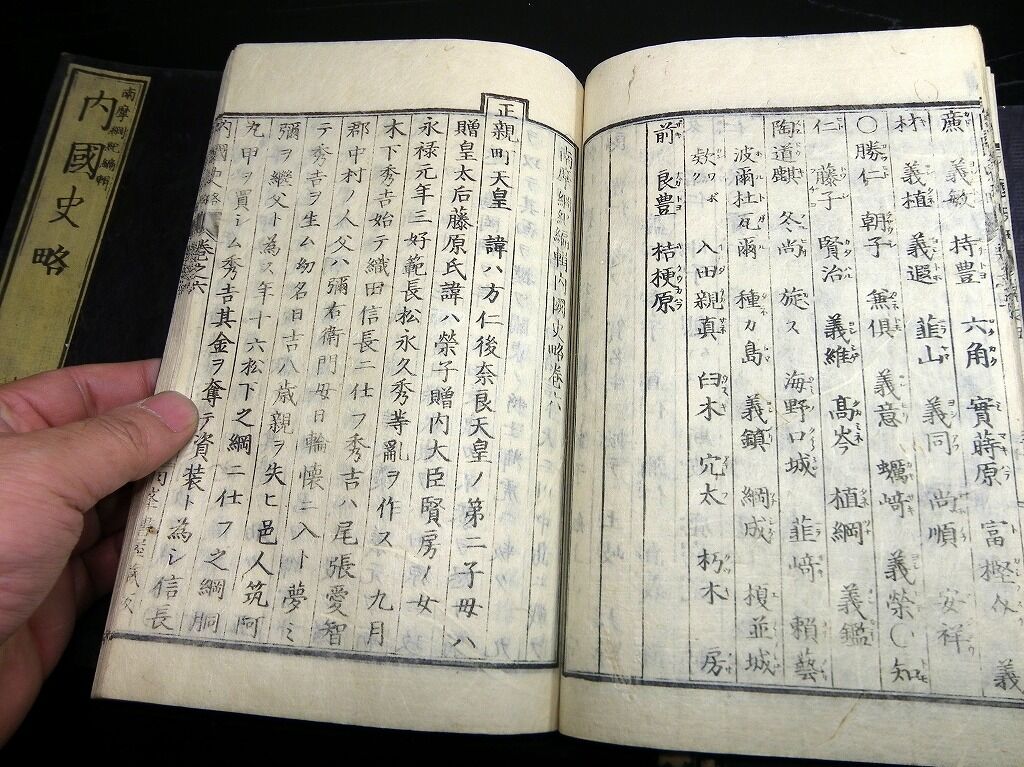 南摩綱紀編輯
内國史略
義敏 持豊 六角 實蒔原 富樫 義
義植 義遐 韮山 義同 尚順 安祥
〇勝仁 朝子 無倶 義意 蠣﨑 義榮〇知
仁 藤子 賢治 義維 髙岑 植綱 義鑑
陶道麒 冬尚 旋ス 海野口城 韮﨑 頼藝
波爾杜瓦爾 種カ島 義鎮 綱成 榎並城
欸 入田親真 臼木 穴太 朽木 房
前 良豊 桔梗原
南摩綱紀編輯内國史略巻六
正親町天皇 諱ハ方仁後奈良天皇ノ第二子母ハ
贈皇太后藤原氏諱ハ榮子贈内大臣賢房ノ女
永禄元年三好範長松永久秀等亂ヲ作ス 九月
木下秀吉始テ織田信長ニ仕フ秀吉ハ尾張愛智
郡中村ノ人父ハ彌右衛門母日輪懐ニ入ト夢ミ
テ秀吉ヲ生ム幼名日吉八歳親ヲ失ヒ邑人筑阿
彌ヲ継父ト為ス年十六松下之綱ニ仕フ之綱胴
九甲ヲ買シム秀吉其金ヲ奪テ資装ト為シ信長
内國史略 巻之六